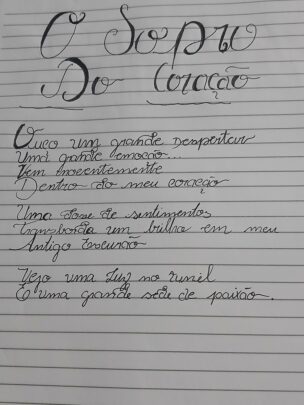 O Sopro
Do Coração
Ouço um grande Despertar
Uma grande emoção...
Vem inocentemente
Dentro do meu coração
Uma dose de sentimentos
Transborda um brilho em meu
Antigo Escurão
Vejo uma Luz no tunel
E uma grande sede de paixão.